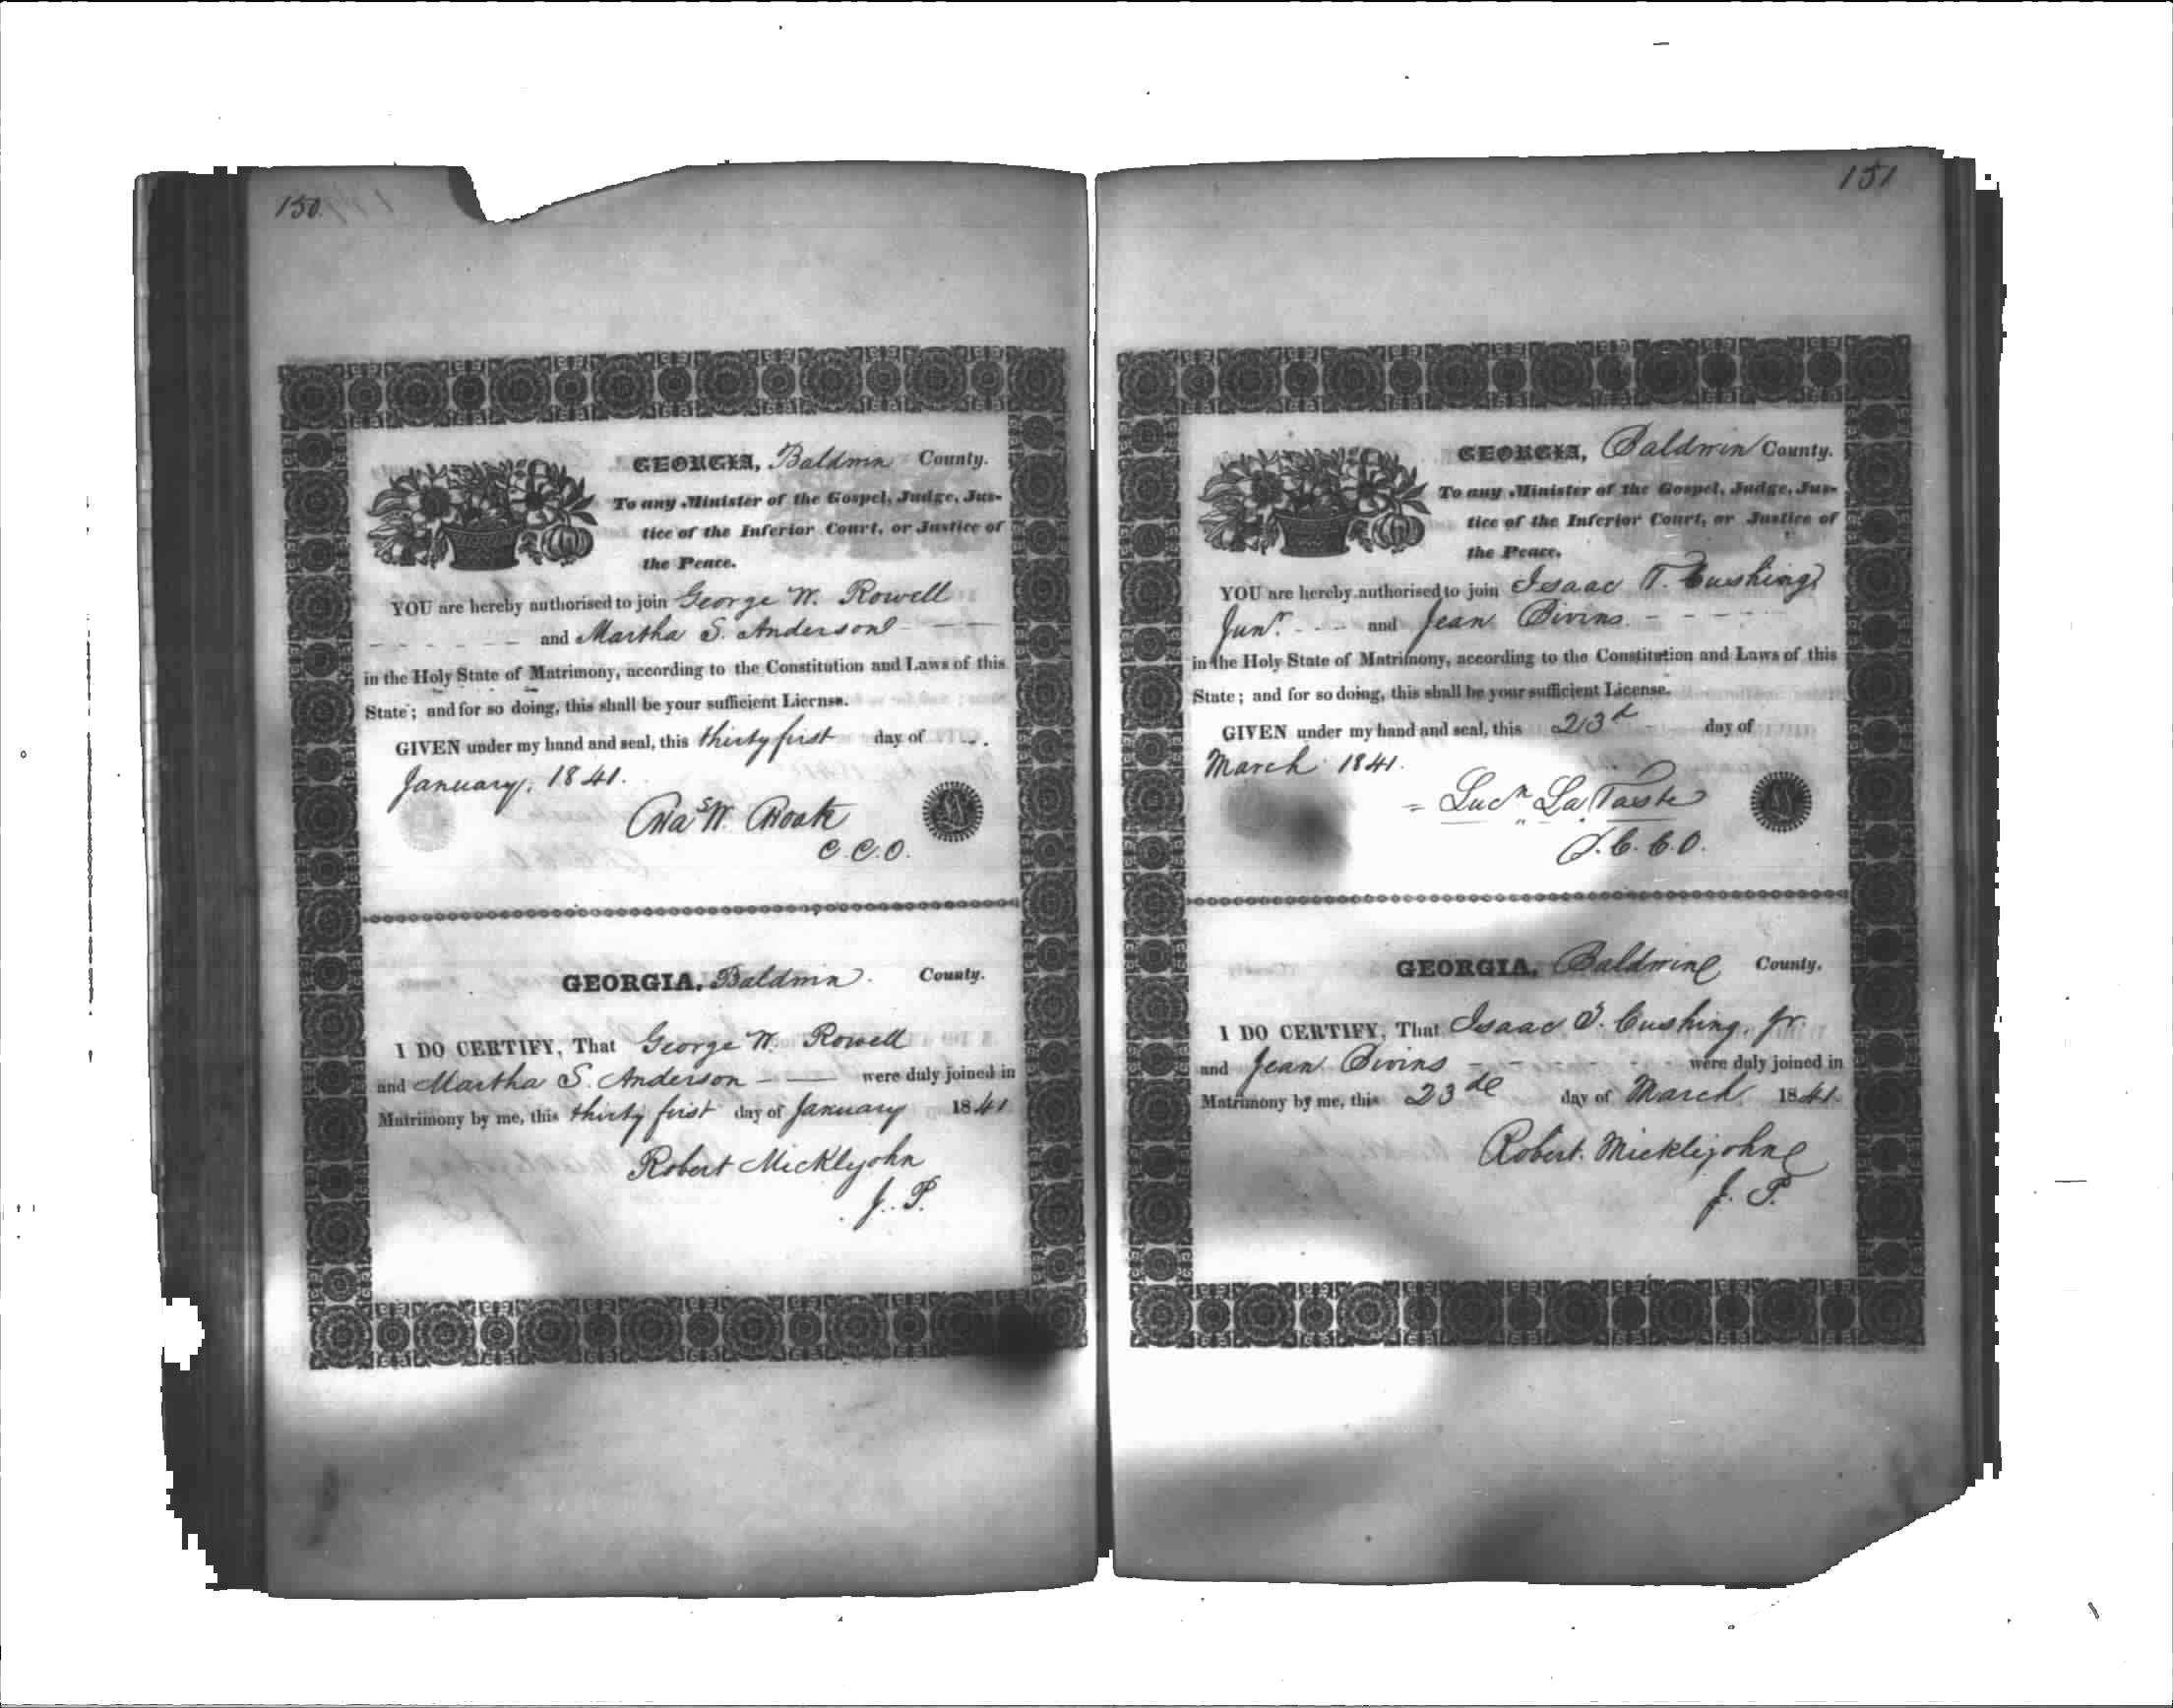 150.
GEORGIA, Baldwin County.
To any Minister of the Gospel, Judge, Jus-
tice of the Inferior Court, or Justice of
the Peace.
YOU are hereby authorised to join George W. Rowell
and Martha S. Anderson
in the Holy State of Matrimony, according to the Constitution and Laws of this
State; and for so doing, this shall be your sufficient License.
GIVEN under my hand and seal, this thirty first day of
January, 1841.
W.
C.C.O.
GEORGIA, Baldwin. County.
I DO CERTIFY, That George W. Rowell
and Martha S. Anderson were duly joined in
Matrimony by me, this thirty first day of January 1841
Robert Micklejohn
J. P.
151
GEORGIA, Baldwin County.
To any Minister of the Gospel, Judge, Jus-
tice of the Inferior Court, or Justice of
the Peace.
YOU are hereby authorised to join Isaac T. Cushing
Junr. and Jean Bivins
in the Holy State of Matrimony, according to the Constitution and Laws of this
State; and for so doing, this shall be your sufficient License.
GIVEN under my hand and seal, this 23d day of
March 1841.
Lucn La Taste
D.C.C.O.
GEORGIA, Baldwin County.
I DO CERTIFY, That Isaac T. Cushing, Jr.
and Jean Bivins were duly joined in
Matrimony by me, this 23d day of March 1841.
Robert Micklejohn
J. P.